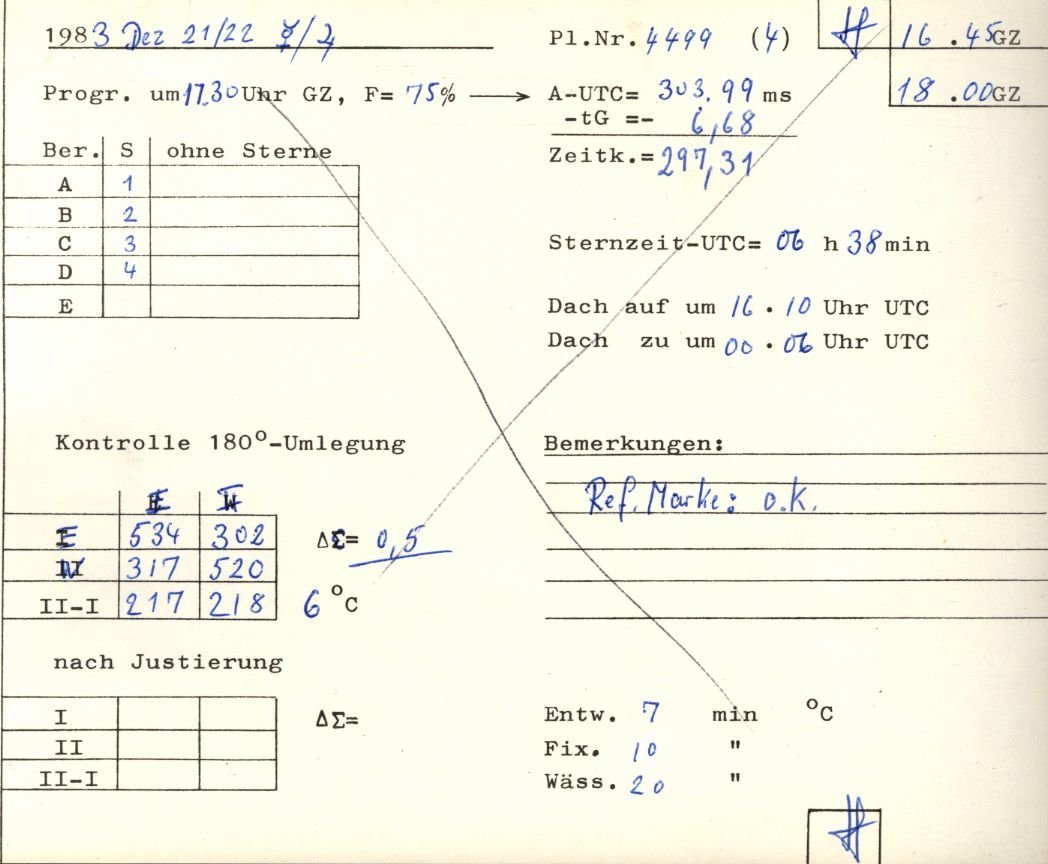 1983 Dez 21/22 ☿/♃ Pl.Nr. 4499 (4) 16.45GZ
Progr. um 17.30 Uhr GZ, F= 75% → A-UTC= 303.99 ms 18.00GZ
-tG =- 6,68
Ber. S ohne Sterne Zeitk.= 297,31
A 1
B 2
C 3 Sternzeit-UTC= 06 h 38 min
D 4
E Dach auf um 16.10 Uhr UTC
Dach zu um 00.06 Uhr UTC
Kontrolle 180°-Umlegung Bemerkungen:
I II Ref. Marke: o.k.
E 534 302 ΔΣ= 0,5
W 317 520
II-I 217 218 6 °C
nach Justierung
I ΔΣ= Entw. 7 min °C
II Fix. 10 "
II-I Wäss. 20 "